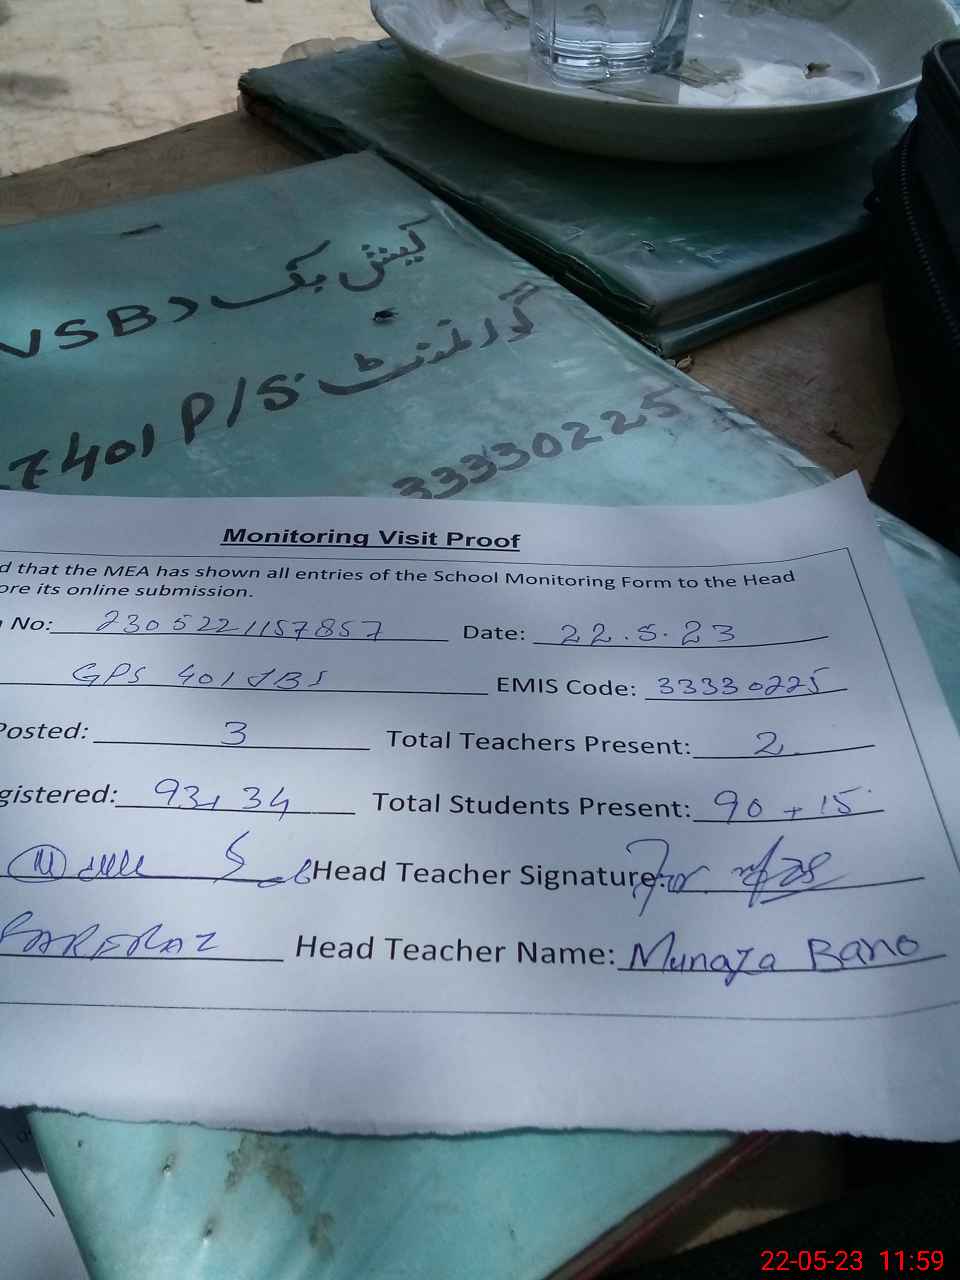 کیش بک NSB
گورنمنٹ P/S 401
33330225
Monitoring Visit Proof
that the MEA has shown all entries of the School Monitoring Form to the Head
its online submission.
No: 2305221157857 Date: 22.5.23
GPS 401 JBS EMIS Code: 33330225
Posted: 3 Total Teachers Present: 2
gistered: 93+34 Total Students Present: 90+15
Head Teacher Signature: For
Head Teacher Name: Munaza Bano
22-05-23 11:59